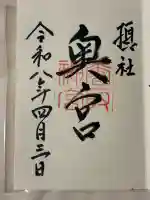 摂社
奥宮
令和八年四月三日